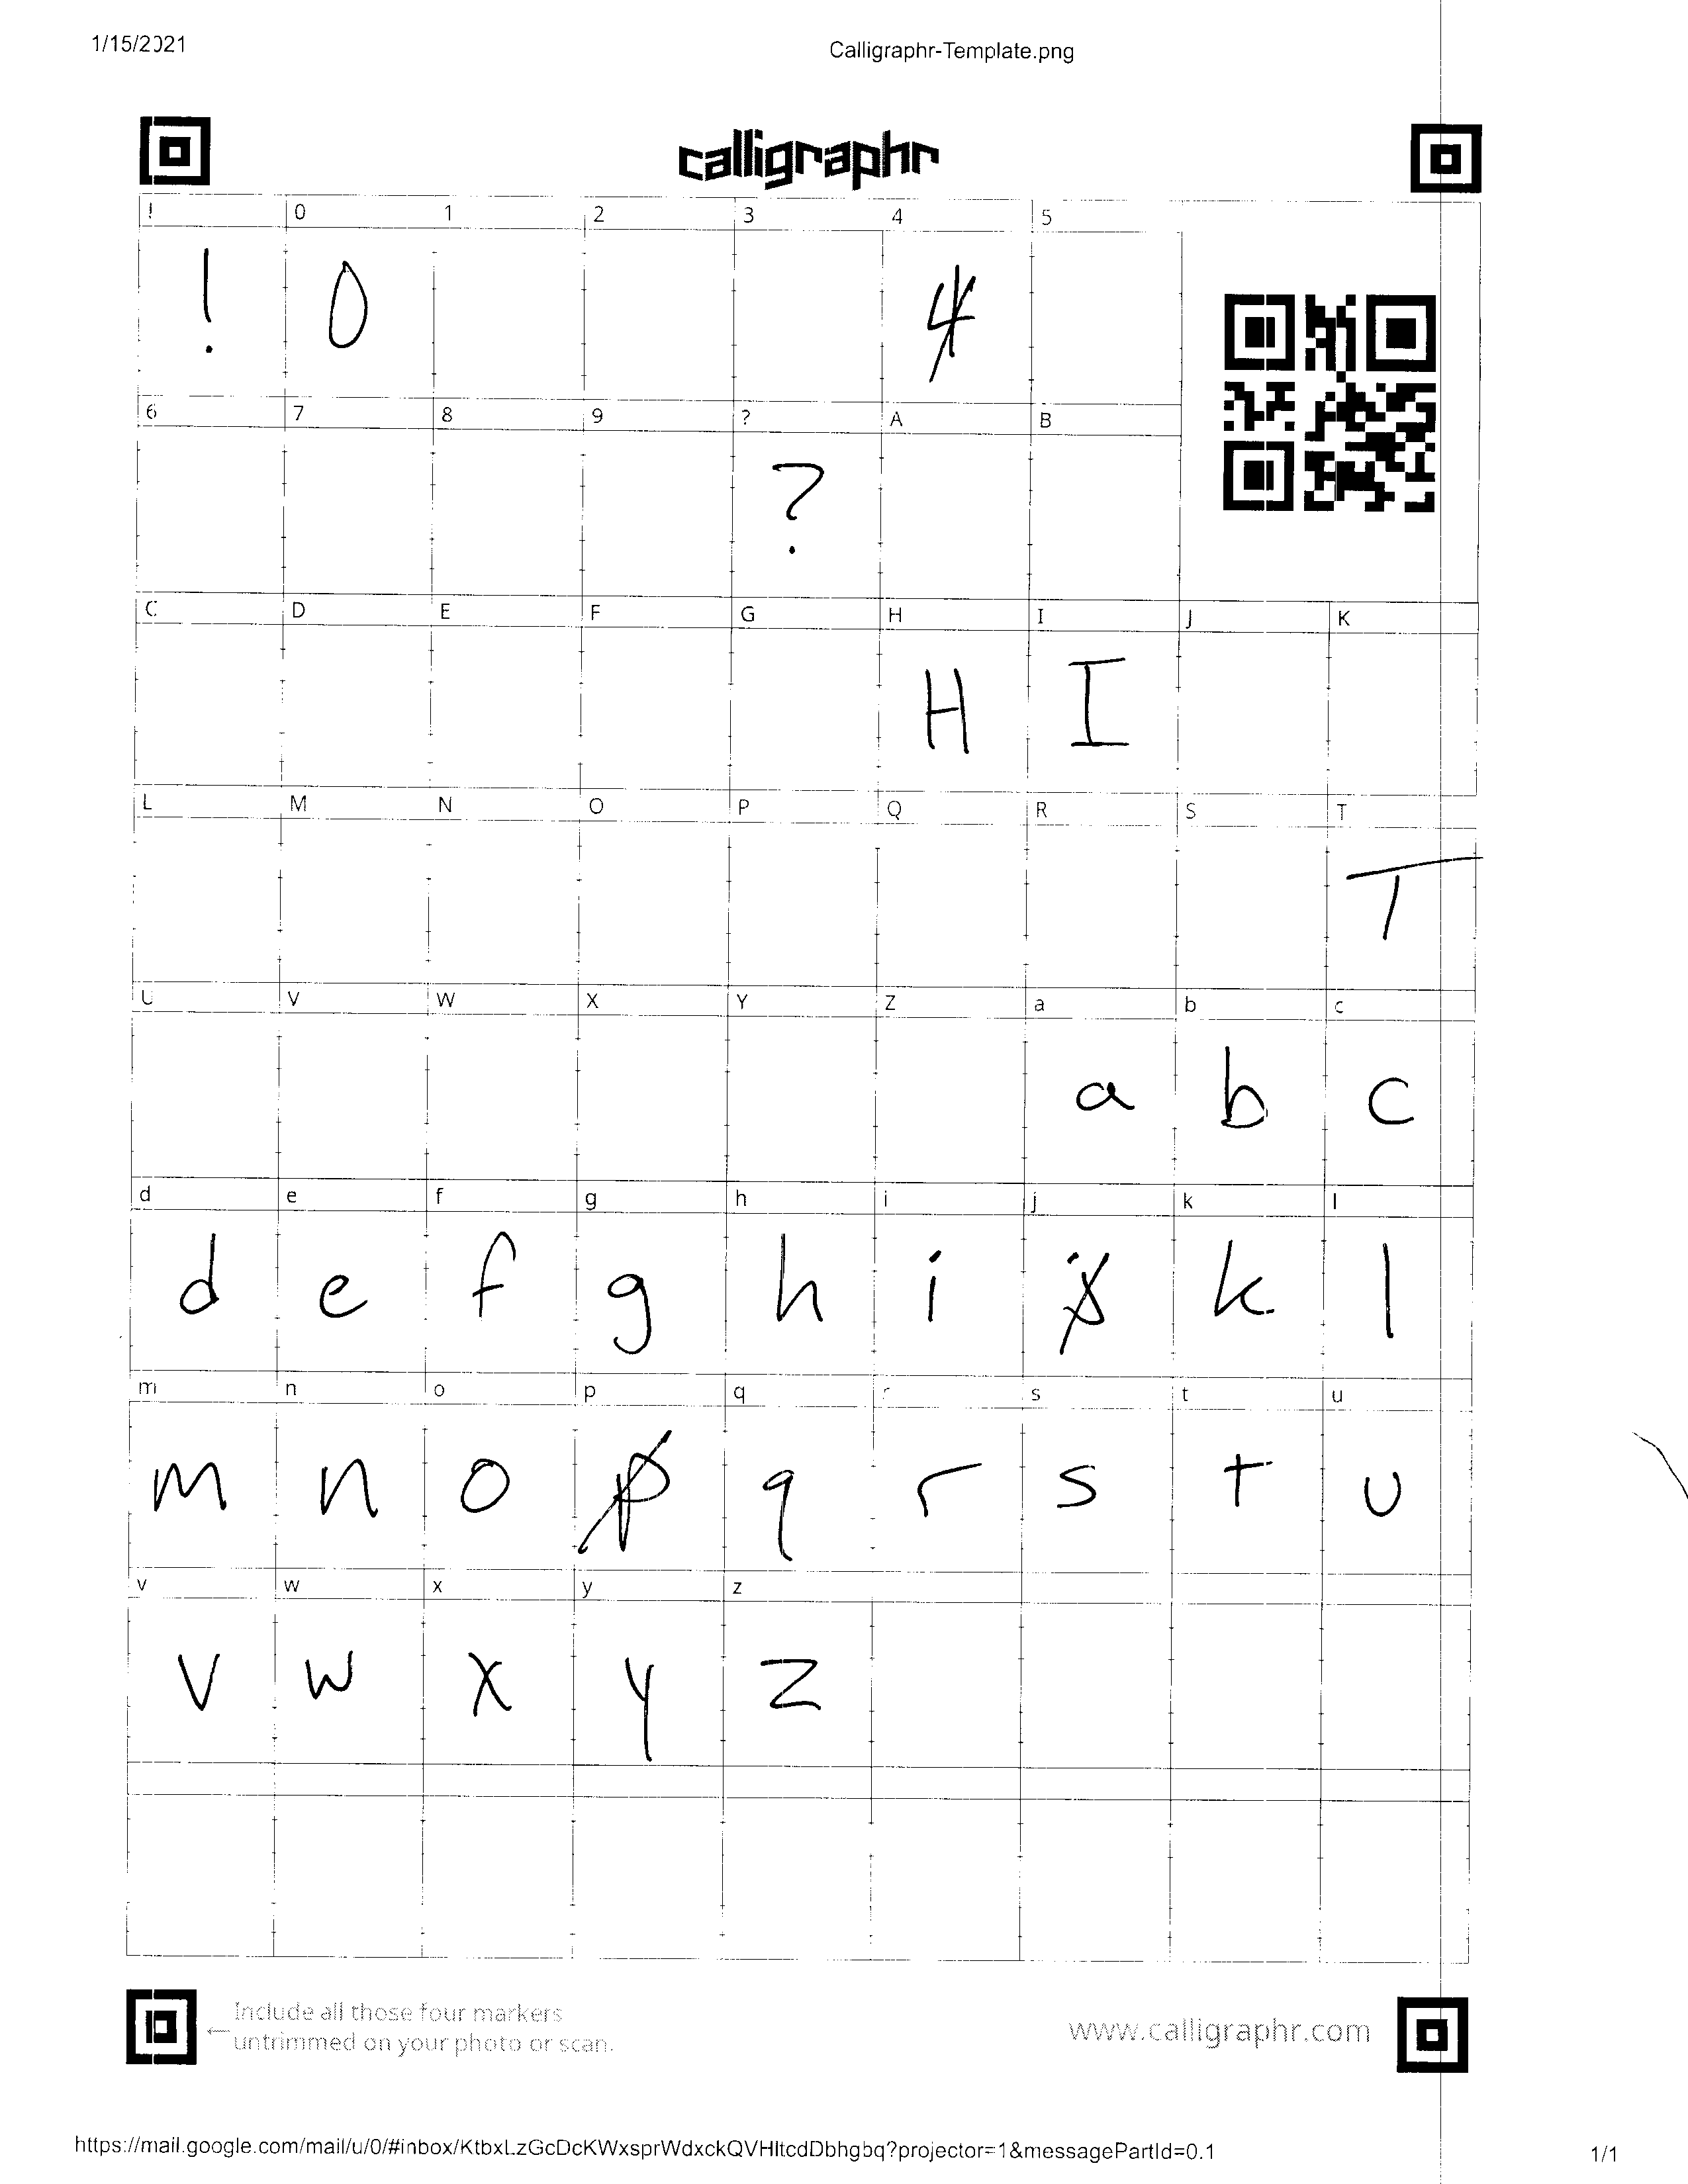 1/15/2021 Calligraphr-Template.png
calligraphr
! 0 1 2 3 4 5
! 0 4
6 7 8 9 ? A B
?
C D E F G H I J K
H I
L M N O P Q R S T
T
U V W X Y Z a b c
a b c
d e f g h i j k l
d e f g h i k l
m n o p q r s t u
m n o p q r s t u
v w x y z
v w x y z
Include all those four markers
← untrimmed on your photo or scan.
www.calligraphr.com
https://mail.google.com/mail/u/0/#inbox/KtbxLzGcDcKWxsprWdxckQVHltcdDbhgbq?projector=1&messagePartId=0.1 1/1